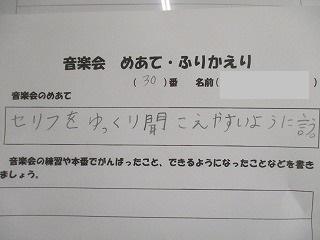 音楽会 めあて・ふりかえり
(30)番 名前(
音楽会のめあて
セリフをゆっくり聞こえやすいように言う。
音楽会の練習や本番でがんばったこと、できるようになったことなどを書き
ましょう。